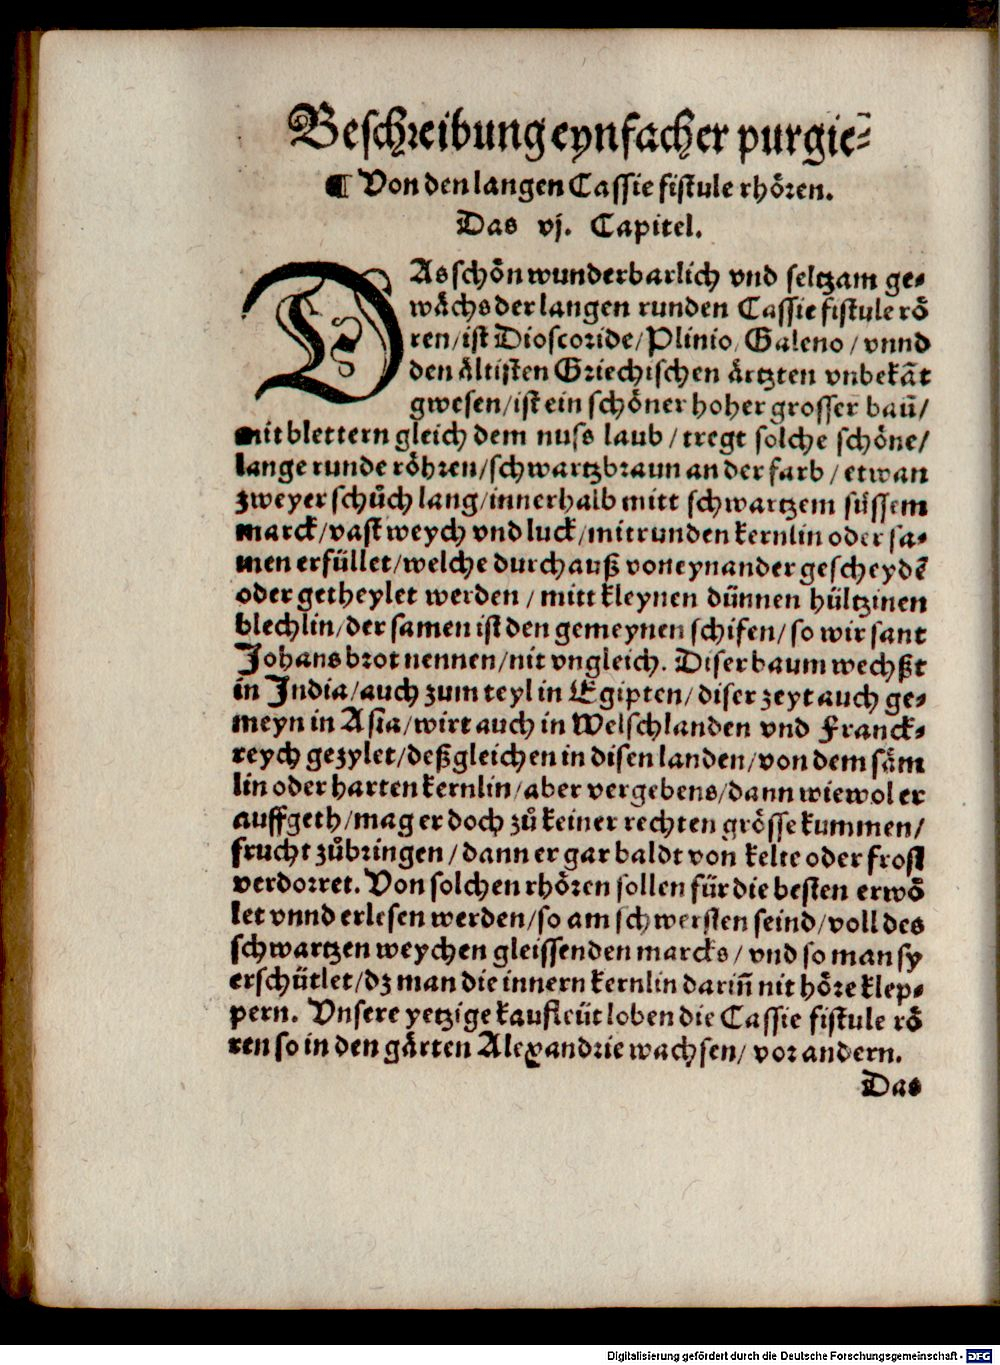 Beschreibung eynfacher purgie⸗
¶ Von den langen Cassie fistule rhören.
Das vj. Capitel.
DAs schön wunderbarlich vnd seltzam ge⸗
wåchs der langen runden Cassie fistule rö
ren/ist Dioscoride/Plinio/Galeno/vnnd
den åltisten Griechischen årtzten vnbekãt
gwesen/ist ein schöner hoher grosser baũ/
mit blettern gleich dem nuss laub/tregt solche schöne/
lange runde röhren/schwartzbraun an der farb/etwan
zweyer schůch lang/innerhalb mitt schwartzem süssem
marck/vast weych vnd luck/mit runden kernlin oder sa⸗
men erfüllet/welche durchauß von eynander gescheydẽ
oder getheylet werden/mitt kleynen dünnen hültzinen
blechlin/der samen ist den gemeynen schifen/so wir sant
Johans brot nennen/nit vngleich. Diser baum wechßt
in India/auch zum teyl in Egipten/diser zeyt auch ge⸗
meyn in Asia/wirt auch in Welschlanden vnd Franck⸗
reych gezylet/deßgleichen in disen landen/von dem såm
lin oder harten kernlin/aber vergebens/dann wiewol er
auffgeth/mag er doch zů keiner rechten grösse kummen/
frucht zůbringen/dann er gar baldt von kelte oder frost
verdorret. Von solchen rhören sollen für die besten erwö
let vnnd erlesen werden/so am schwersten seind/voll des
schwartzen weychen gleissenden marcks/vnd so man sy
erschütlet/dz man die innern kernlin dariñ nit höre klep⸗
pern. Vnsere yetzige kaufleüt loben die Cassie fistule rö
ren so in den gårten Alexandrie wachsen/vor andern.
Das
Digitalisierung gefördert durch die Deutsche Forschungsgemeinschaft - DFG